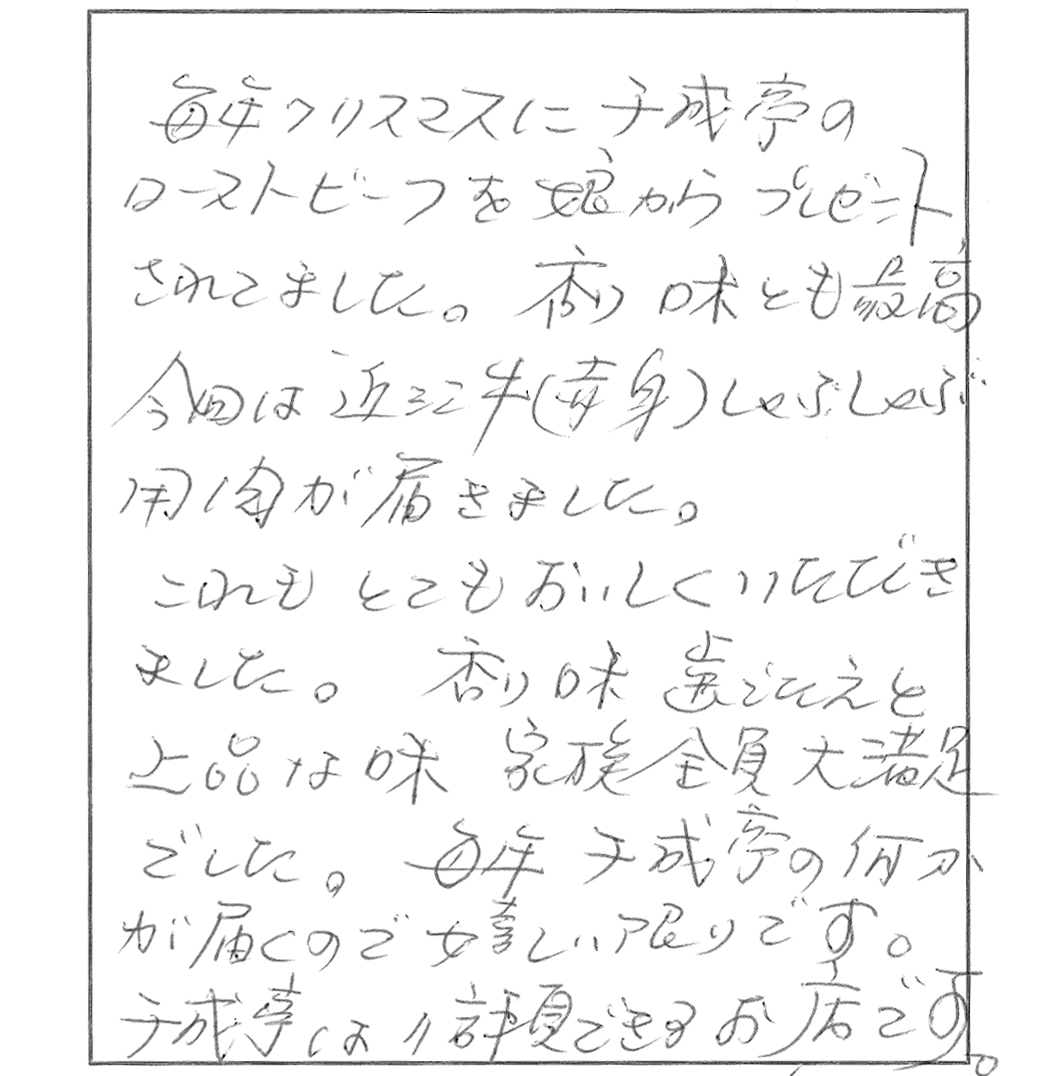 毎年クリスマスに千成亭の
ローストビーフを娘からプレゼント
されてました。香り味とも最高
今回は近江牛(赤身)しゃぶしゃぶ
用肉が届きました。
これもとてもおいしくいただき
ました。香り味歯ごたえと
上品な味 家族全員大満足
でした。毎年千成亭の何か
が届くので嬉しい限りです。
千成亭は信頼できるお店です。